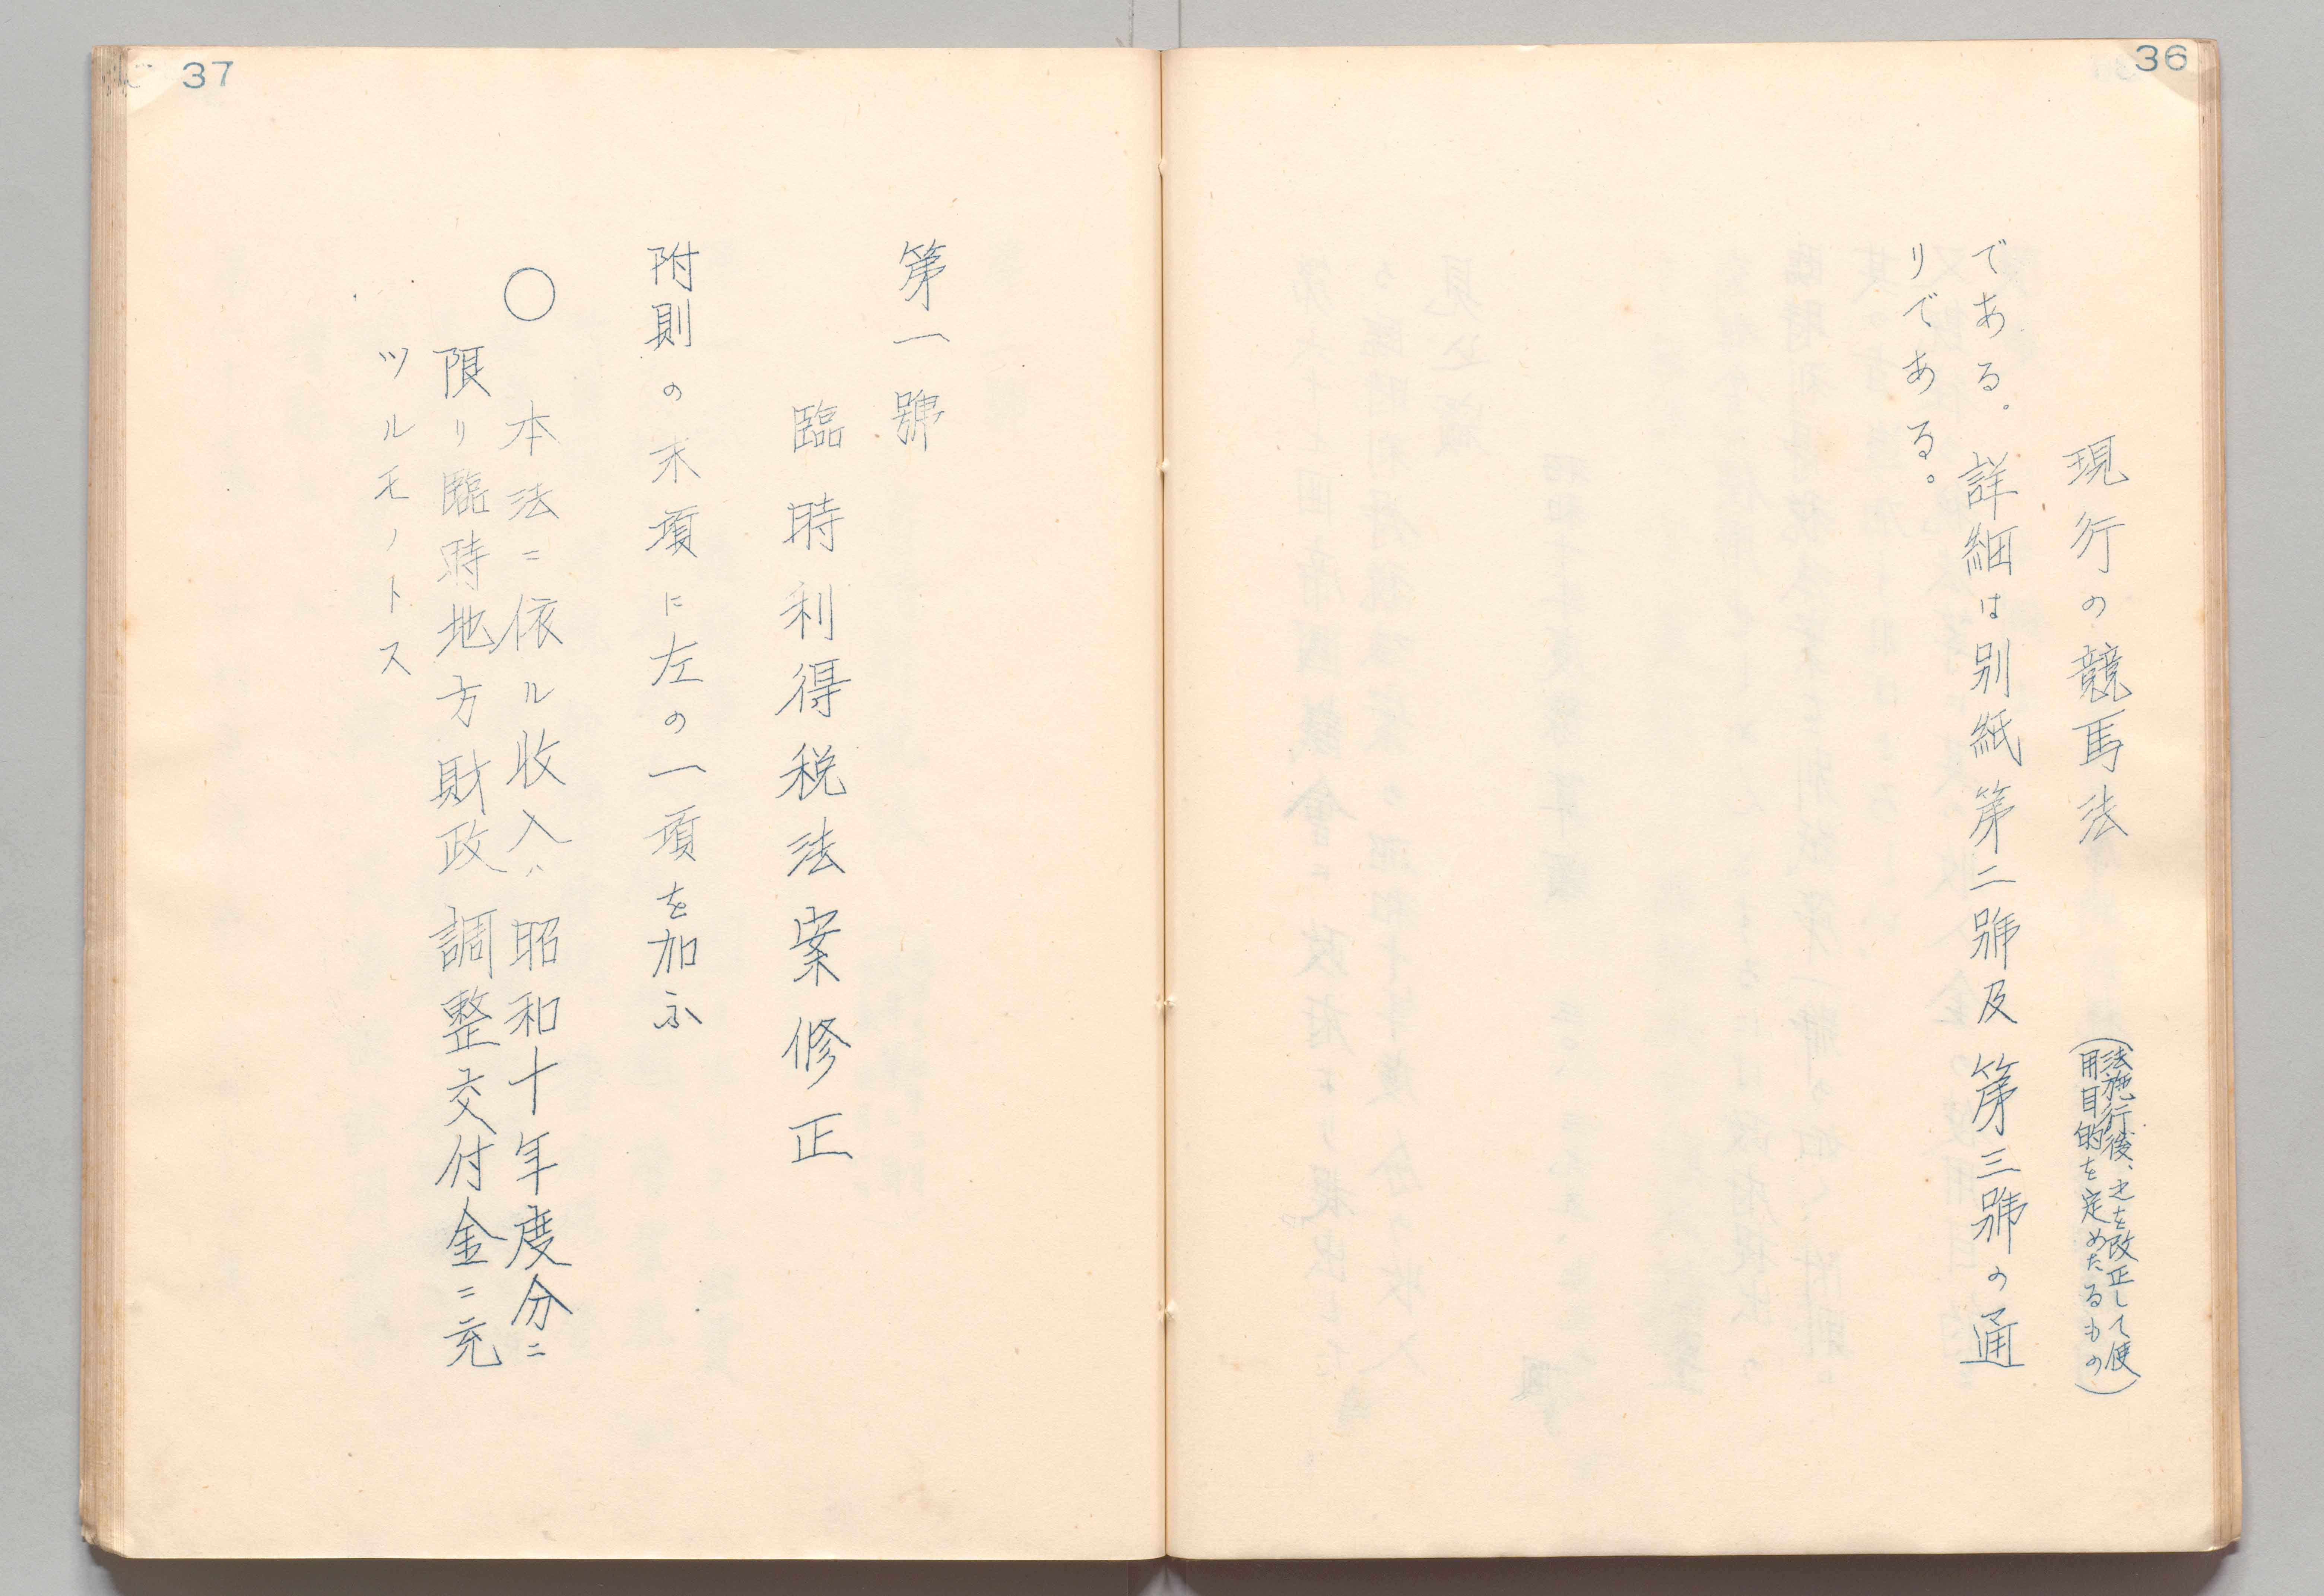 36
現行の競馬法
(法施行後、之を改正して使
用目的を定めたるもの)
である。詳細は別紙第二號及第三號の通
りである。
37
第一號
臨時利得税法案修正
附則の末項に左の一項を加ふ
○ 本法ニ依ル收入ハ昭和十年度分ニ
限リ臨時地方財政調整交付金ニ充
ツルモノトス